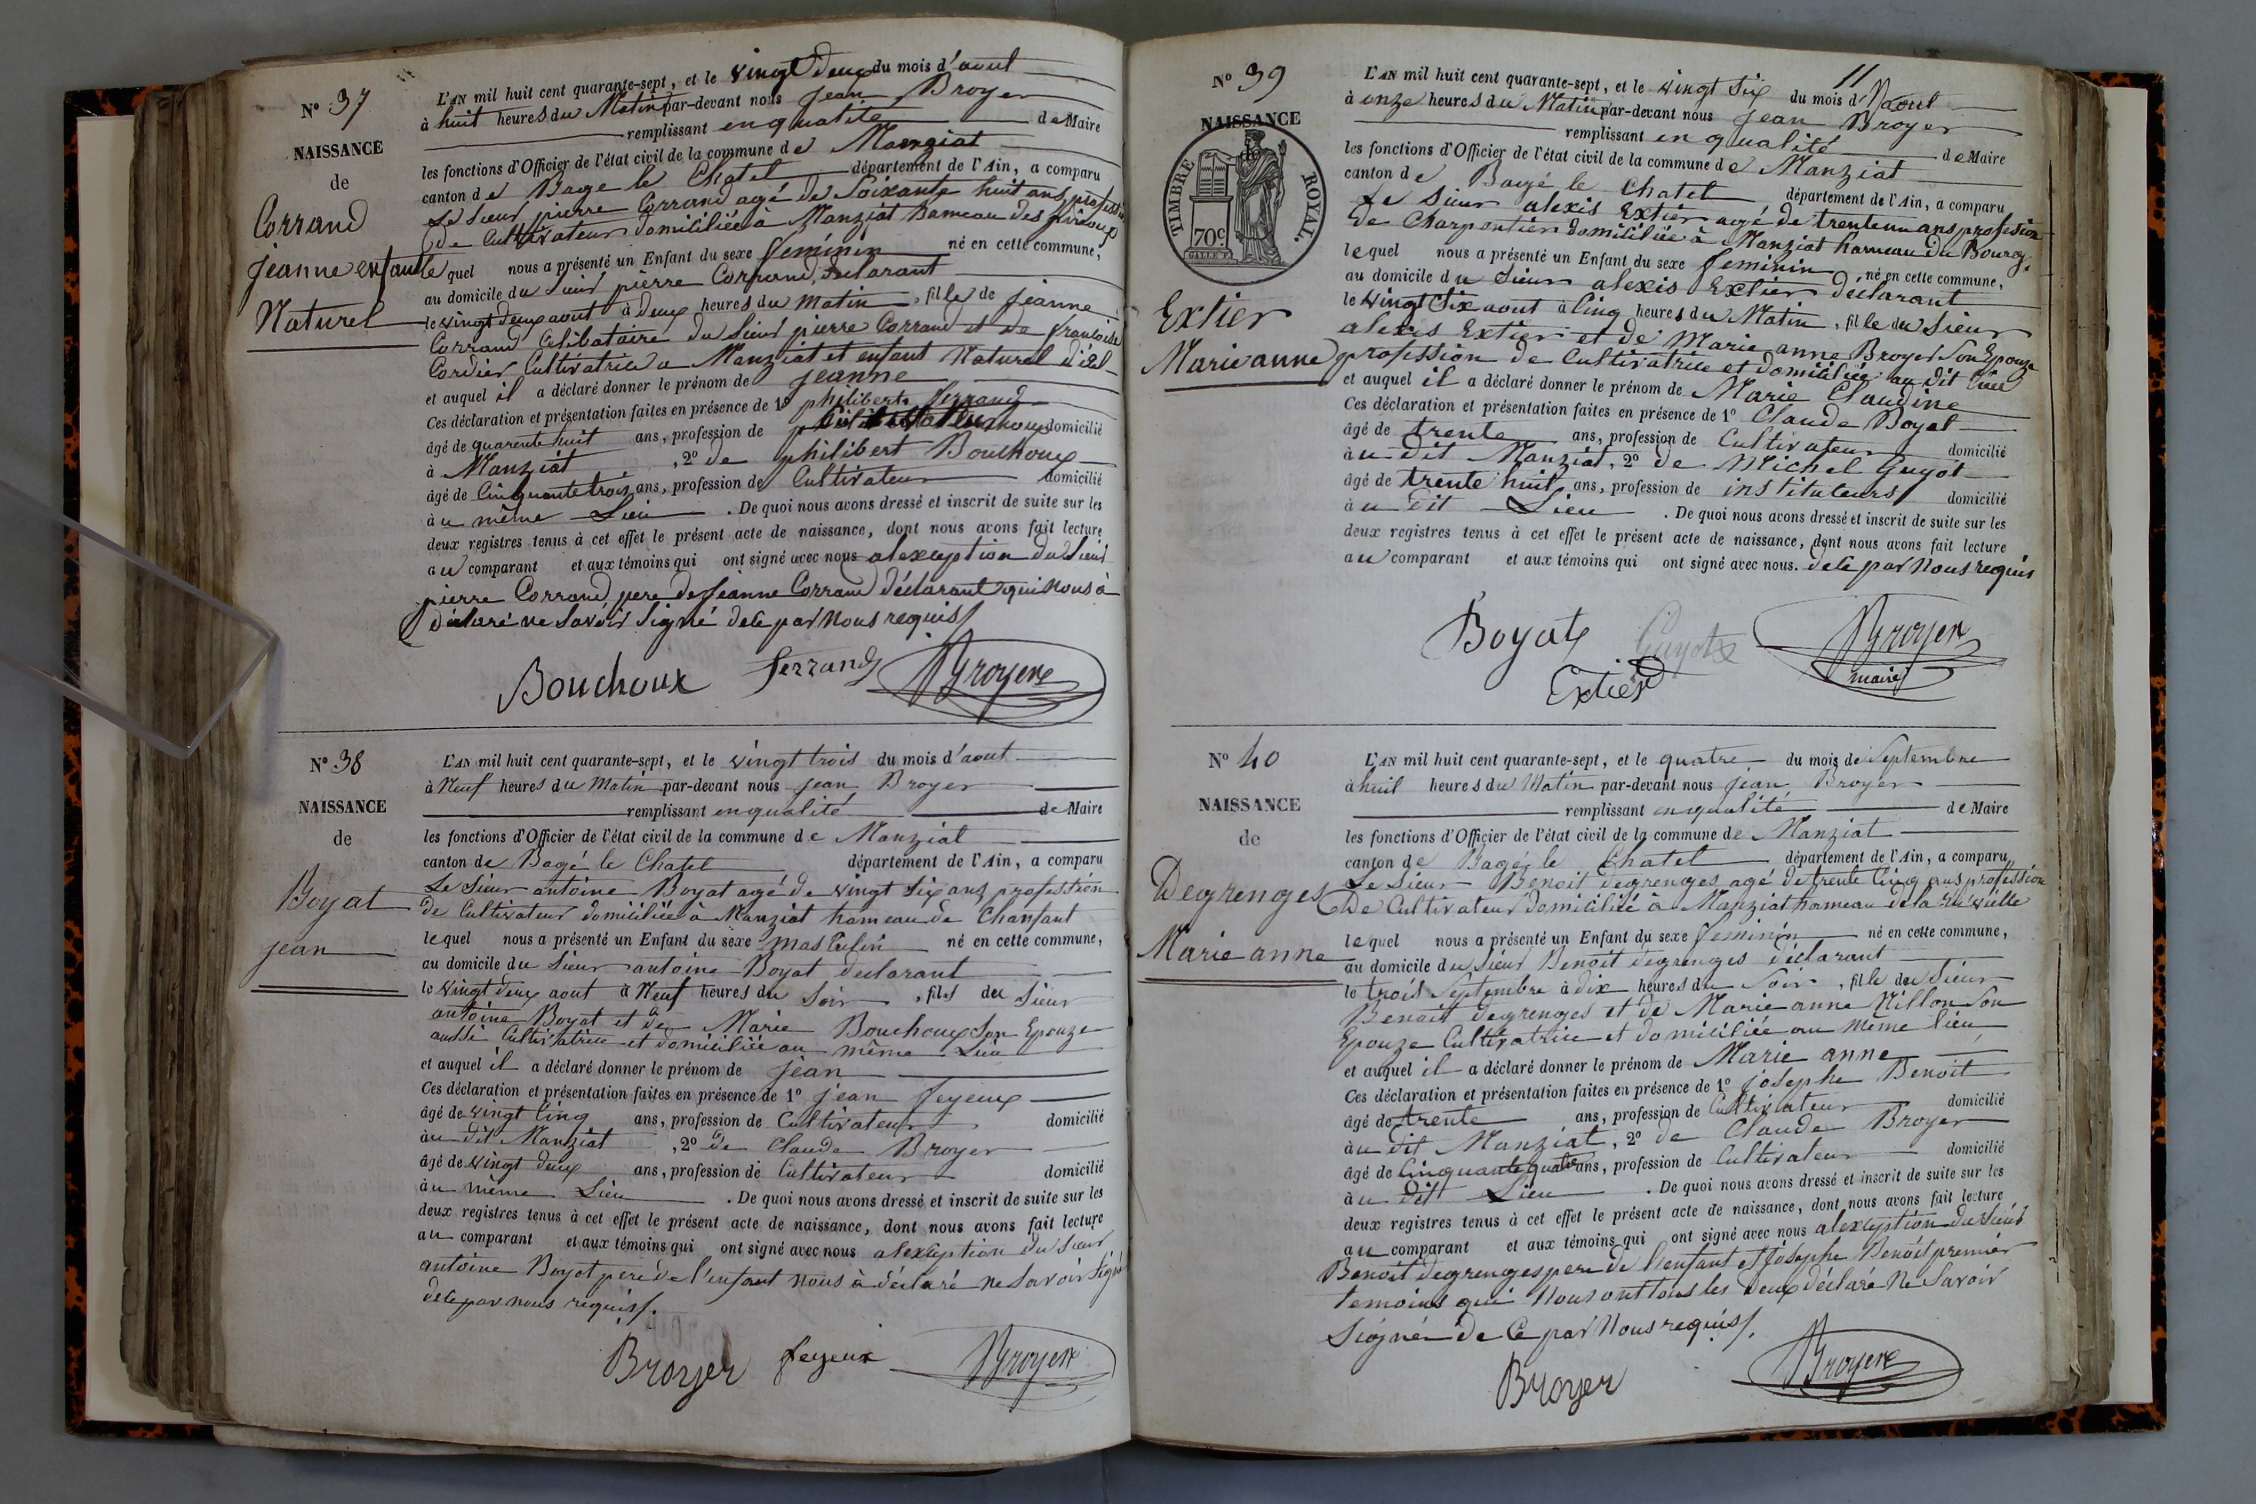 N° 37
NAISSANCE
de
Corrand
jeanne enfant
Naturel
L'AN mil huit cent quarante-sept, et le vingt deux du mois d'aout
à huit heures du Matin par-devant nous jean Broyer
remplissant en qualité de Maire
les fonctions d'Officier de l'état civil de la commune de Manziat
canton de Bage le Chatel département de l'Ain, a comparu
Le Sieur pierre Corrand agé de Soixante huit ans profession
de Cultivateur domiciliée à Manziat hameau des
le quel nous a présenté un Enfant du sexe feminin né en cette commune,
au domicile du Sieur pierre Corrand, declarant
le vingt deux aout à deux heures du matin, fille de jeanne
Corrand Celibataire du Sieur pierre Corrand et da francoise
Cordier Cultivatrice a Manziat et enfant Naturel d'éel
et auquel il a déclaré donner le prénom de jeanne
Ces déclaration et présentation faites en présence de 1° philiberte ferrand
âgé de quarente huit ans, profession de domicilié
à Manziat, 2° de philibert Bouchoux
âgé de Cinquante trois ans, profession de Cultivateur domicilié
àu même Lieu. De quoi nous avons dressé et inscrit de suite sur les
deux registres tenus à cet effet le présent acte de naissance, dont nous avons fait lecture
au comparant et aux témoins qui ont signé avec nous alexception du Sieur
pierre Corrand pere de Jeanne Corrand déclarant qui nous à
déclaré ne Savoir Signé dele par nous requis
Bouchoux ferrand Broyer
N° 38
NAISSANCE
de
Boyat
jean
L'AN mil huit cent quarante-sept, et le vingt trois du mois d'aout
à Neuf heures du Matin par-devant nous jean Broyer
remplissant en qualité de Maire
les fonctions d'Officier de l'état civil de la commune de Manziat
canton de Bagé le Chatel département de l'Ain, a comparu
Le Sieur antoine Boyat agé de vingt Six ans profession
de Cultivateur domiciliée à Manziat hameau de Chanfant
le quel nous a présenté un Enfant du sexe masculin né en cette commune,
au domicile du Sieur antoine Boyat declarant
le vingt deux aout à Neuf heures du Soir, fils du Sieur
antoine Boyat et de Marie Bouchoux Son Epouze
aussi Cultivatrice et domiciliée au même Lieu
et auquel il a déclaré donner le prénom de jean
Ces déclaration et présentation faites en présence de 1° jean feyeux
âgé de vingt Cinq ans, profession de Cultivateur domicilié
àu dit Manziat, 2° de Claude Broyer
âgé de vingt deux ans, profession de Cultivateur domicilié
àu même Lieu. De quoi nous avons dressé et inscrit de suite sur les
deux registres tenus à cet effet le présent acte de naissance, dont nous avons fait lecture
au comparant et aux témoins qui ont signé avec nous alexception du Sieur
antoine Boyat pere de l'enfant nous à déclaré ne Savoir Signé
dele par nous requis.
Broyer feyeux Broyer
11
N° 39
NAISSANCE
de
TIMBRE ROYAL.
70c
Extier
Marie anne
L'AN mil huit cent quarante-sept, et le vingt Six du mois d'aout
à onze heures du Matin par-devant nous jean Broyer
remplissant en qualité de Maire
les fonctions d'Officier de l'état civil de la commune de Manziat
canton de Bagé le Chatel département de l'Ain, a comparu
Le Sieur alexis Extier agé de trente un ans profession
de Charpentier domiciliée à Manziat hameau du Bourg.
le quel nous a présenté un Enfant du sexe feminin né en cette commune,
au domicile du Sieur alexis Extier déclarant
le vingt Six aout à Cinq heures du Matin, fille du Sieur
alexis Extier et de Marie anne Broyer Son Epouze
profession de Cultivatrice et domiciliée au dit lieu
et auquel il a déclaré donner le prénom de Marie Claudine
Ces déclaration et présentation faites en présence de 1° Claude Boyat
âgé de trente ans, profession de Cultivateur domicilié
àu dit Manziat, 2° de Michel Guyot
âgé de trente huit ans, profession de instituteurs domicilié
àu dit Lieu. De quoi nous avons dressé et inscrit de suite sur les
deux registres tenus à cet effet le présent acte de naissance, dont nous avons fait lecture
au comparant et aux témoins qui ont signé avec nous. dele par nous requis
Boyat Guyot Broyer
Extier maire
N° 40
NAISSANCE
de
Degrenges
Marie anne
L'AN mil huit cent quarante-sept, et le quatre du mois de Septembre
à huit heures du Matin par-devant nous jean Broyer
remplissant en qualité de Maire
les fonctions d'Officier de l'état civil de la commune de Manziat
canton de Bagé le Chatel département de l'Ain, a comparu
Le Sieur Benoit degrenges agé de trente Cinq ans profession
De Cultivateur domiciliée à Manziat hameau de la
le quel nous a présenté un Enfant du sexe feminin né en cette commune,
au domicile du Sieur Benoit degrenges déclarant
le trois Septembre à dix heures du Soir, fille du Sieur
Benoit degrenges et de Marie anne Nillon Son
Epouze Cultivatrice et domiciliée au même lieu
et auquel il a déclaré donner le prénom de Marie anne
Ces déclaration et présentation faites en présence de 1° josephe Benoit
âgé de trente ans, profession de Cultivateur domicilié
àu dit Manziat, 2° de Claude Broyer
âgé de Cinquante quatre ans, profession de Cultivateur domicilié
àu dit Lieu. De quoi nous avons dressé et inscrit de suite sur les
deux registres tenus à cet effet le présent acte de naissance, dont nous avons fait lecture
au comparant et aux témoins qui ont signé avec nous alexception du Sieur
Benoit degrenges pere de l'enfant et Josephe Benoit premier
temoins qui nous ont tous les deux déclaré ne Savoir
Signér de Ce par Nous requis.
Broyer Broyer